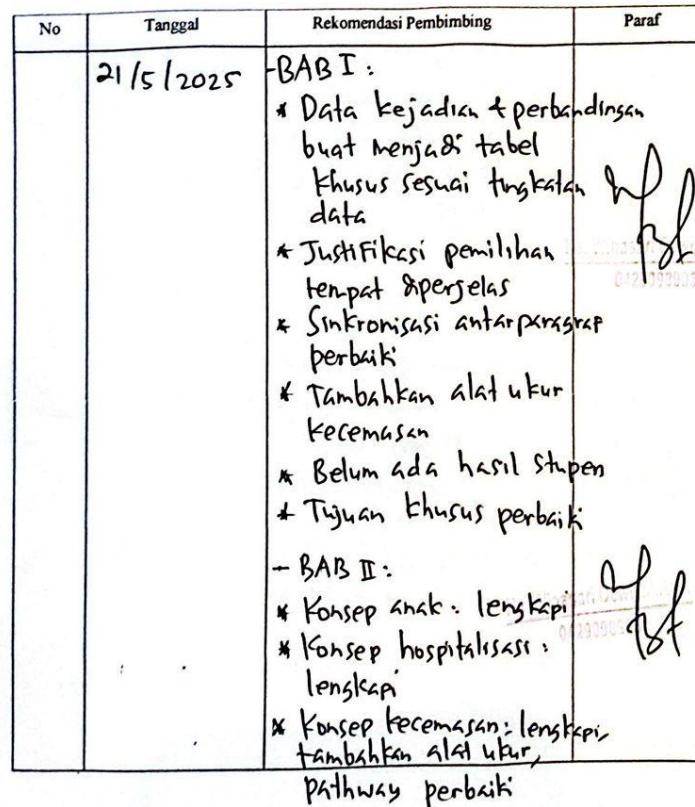 No Tanggal Rekomendasi Pembimbing Paraf
21/5/2025 -BAB I :
* Data kejadian & perbandingan
buat menjadi tabel
khusus sesuai tingkatan
data
* Justifikasi pemilihan
tempat diperjelas
* Sinkronisasi antarparagrap
perbaiki
* Tambahkan alat ukur
kecemasan
* Belum ada hasil stupen
* Tujuan khusus perbaiki
- BAB II :
* Konsep anak : lengkapi
* Konsep hospitalisasi :
lengkapi
* Konsep kecemasan : lengkapi,
tambahkan alat ukur,
pathway perbaiki